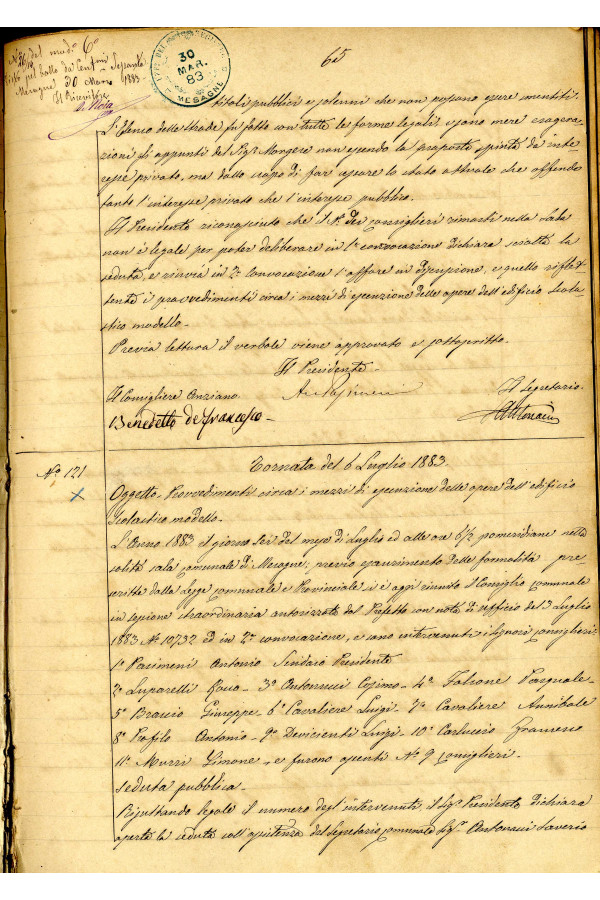 del mod.° 6°
Visto pel bollo da Cent.mi Sessanta
Mesagne 30 Marzo 1883
Il Ricevitore
30
MAR.
83
MESAGNE
65
titoli pubblici e solenni che non possono essere smentiti.
L'Elenco delle strade fu fatto con tutte le forme legali, e sono mere esagera-
zioni gli appunti del Sig.r Morgese non essendo la proposta spinta da inte-
resse privato, ma dallo scopo di far cessare lo stato attuale che offende
tanto l'interesse privato che l'interesse pubblico.
Il Presidente riconosciuto che il N.° dei Consiglieri rimasti nella Sala
non è legale per poter deliberare in 1a convocazione dichiara sciolta la
seduta, e rinvia in 2a convocazione l'affare in discussione, e quello riflet-
tente i provvedimenti circa i mezzi di esecuzione delle opere dell'edificio scola-
stico modello.
Previa lettura il verbale viene approvato e sottoscritto.
Il Presidente
Il Consigliere Anziano
Il Segretario
Benedetto de Francesco
N° 121
Tornata del 6 Luglio 1883.
Oggetto. Provvedimenti circa i mezzi di esecuzione delle opere dell'edificio
scolastico modello.
L'Anno 1883 il giorno sei del mese di Luglio ed alle ore 6 1/2 pomeridiane nella
solita sala comunale di Mesagne, previo esaurimento delle formalità pre-
scritte dalla Legge comunale e Provinciale si è oggi riunito il Consiglio comunale
in sessione straordinaria autorizzata dal Prefetto con nota di ufficio del 3 Luglio
1883 N° 10732 ed in 2a convocazione, e sono intervenuti i Signori consiglieri:
1° Pacimeni Antonio Sindaco Presidente
2° Luparelli Rocco - 3° Antonucci Cosimo - 4° Falcone Pasquale -
5° Braccio Giuseppe - 6° Cavaliere Luigi - 7° Cavaliere Annibale
8° Profilo Antonio - 9° Devicienti Luigi - 10° Carluccio Francesco
11° Murri Simone, e furono assenti N° 9 consiglieri.
Seduta pubblica.
Risultando legale il numero degl'intervenuti, il Sig.r Presidente dichiara
aperta la seduta coll'assistenza del Segretario comunale Sig.r Antonucci Saverio